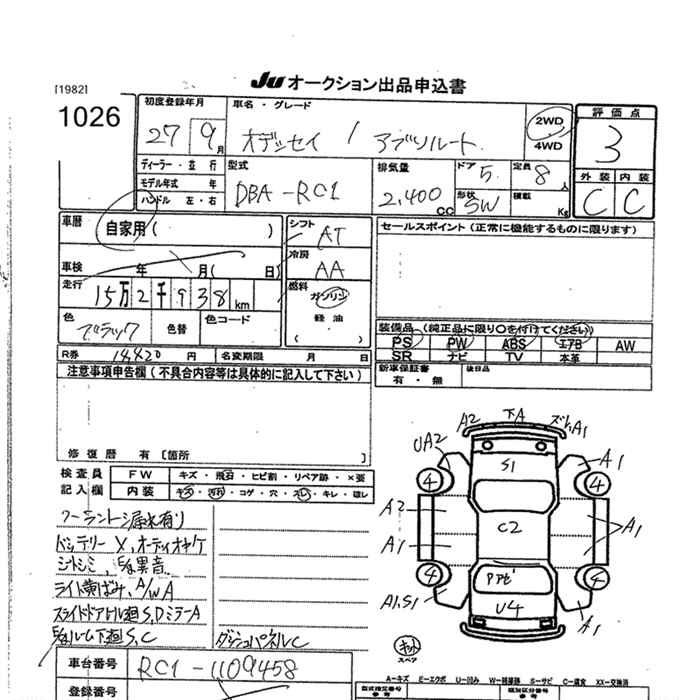 [1982]
JU オークション出品申込書
1026
初度登録年月
27 9月
車名・グレード
オデッセイ / アブソルート
2WD
4WD
評価点
3
ディーラー・並行
モデル年式 年
ハンドル 左・右
型式
DBA-RC1
排気量
2,400 CC
ドア 5
形状 SW
定員 8人
積載 Kg
外装 内装
C C
車暦
自家用 ( )
シフト AT
セールスポイント (正常に機能するものに限ります)
車検 年 月( 日)
冷房 AA
走行
15万2千938 km
燃料
ガソリン
軽油
( )
色
ブラック
色替
色コード
装備品 (純正品に限り〇を付けてください)
PS PW ABS エアB AW
SR ナビ TV 本革
R券 14420 円 名変期限 月 日
新車保証書
有・無
後日品
注意事項申告欄 (不具合内容等は具体的に記入して下さい)
修復歴 有 [箇所
検査員
記入欄
FW キズ・飛石・ヒビ割・リペア跡・×要
内装 キズ・汚れ・コゲ・穴・スレ・キレ・ほし
クーラント漏水有り
バッテリーX,オーディオキケ
シートシミ、異音
ライト黄ばみ,A/W A
スライドドアレール廻S,DミラーA
ルーム下廻S,C
ダッシュパネルC
車台番号 RC1-1109458
登録番号
A2 下A ズレ,A1
UA2
S1
A1
4 4
A2
C2
A1
A1
4 4
Pアゼ
A1.S1
U4
A1
キット
スペア
A=キズ E=エクボ U=凹み W=補修跡 S=サビ C=腐食 XX=交換済
型式指定番号
参考
類別区分番号
参考